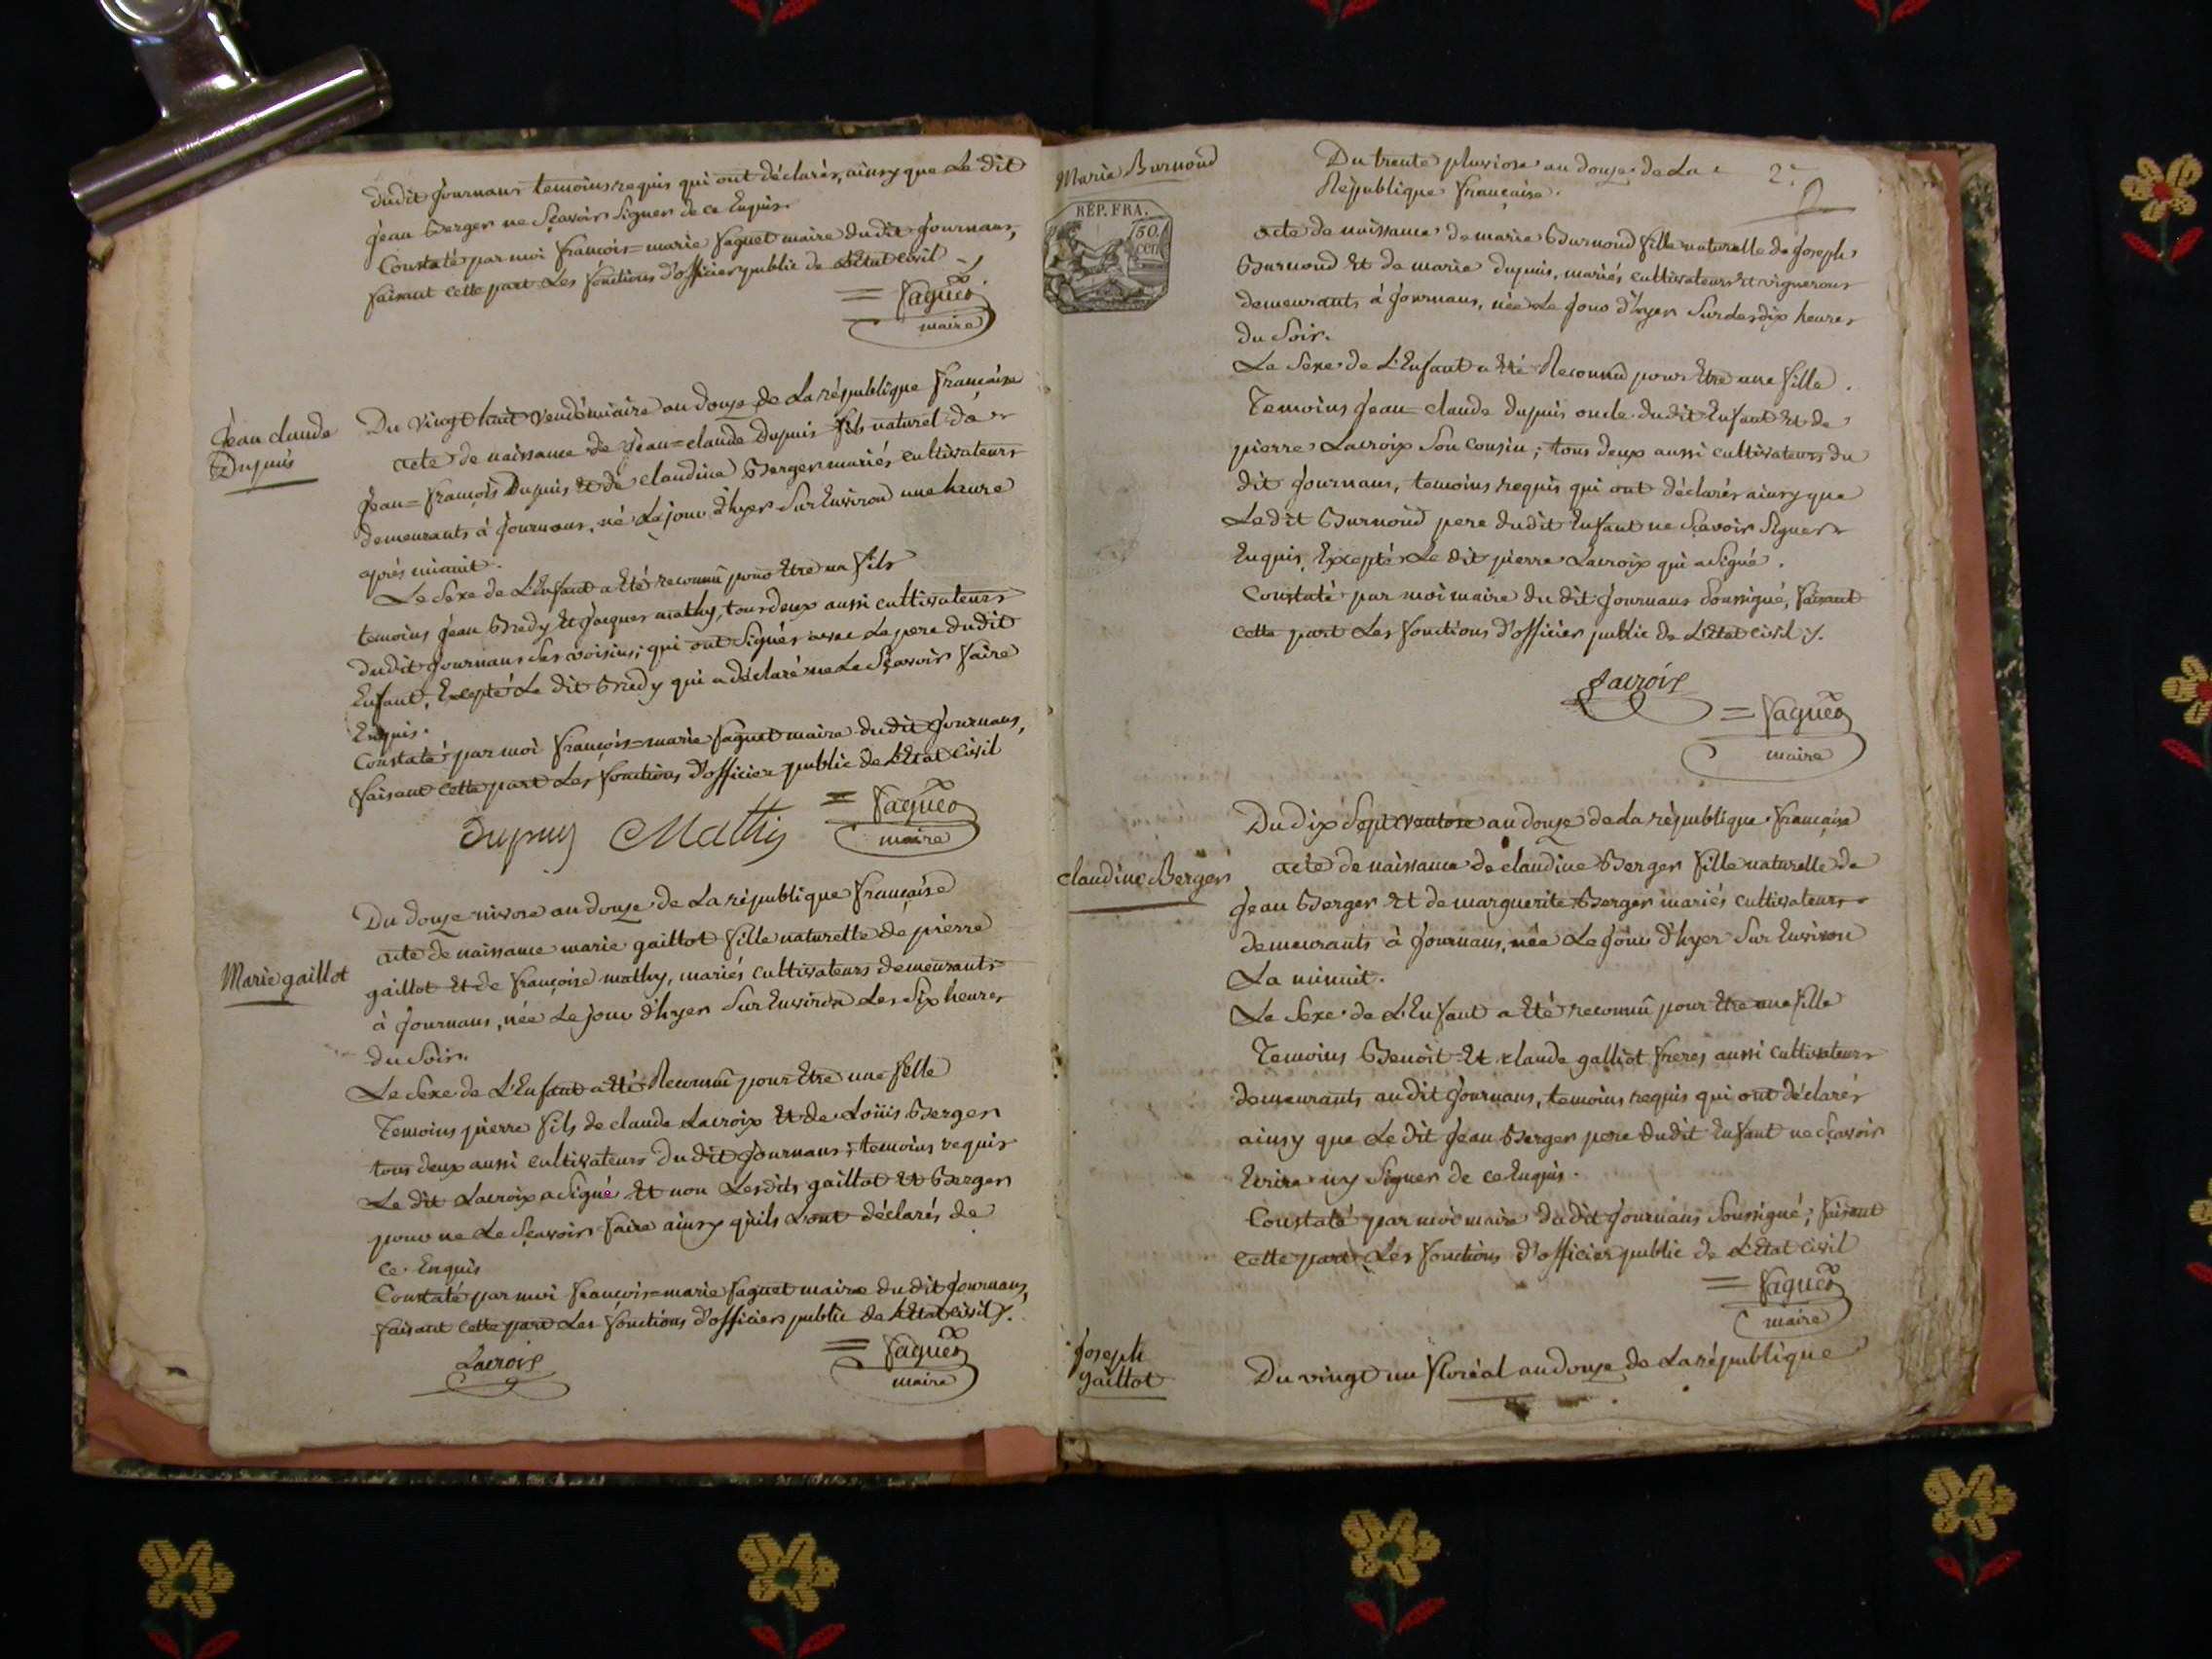 dudit Journans temoins requis qui ont déclarés, ainsy que Le dit
Jean Berger ne Sçavoir Signer de ce Enquis.
Constaté par moi François=marie faguet maire dudit Journans,
faisant cette part Les fonctions d'officier public de L'Etat civil
= faguet
maire
Jean claude
Dupuis
Du vingt huit vendémiaire an douze de La république françaíse
acte de naissance de Jean=claude Dupuis fils naturel de
Jean=françois Dupuis et de claudine Berger mariés cultivateurs
demeurants à Journans, né Le jour d'hyer Sur Environ une heure
après minuit.
Le Sexe de L'Enfant a Eté reconnû pour Etre un fils
temoins Jean Bredy Et Jacques mathy, tous deux aussi cultivateurs
dudit Journans Ses voisins; qui ont Signés avec Le pere dudit
Enfant, Excepté Le dit Bredy qui a déclaré ne Le Sçavoir faire
Enquis.
Constaté par moi françois=marie faguet maire dudit Journans,
faisant cette part Les fonctions d'officier public de L'Etat Civil
Dupuy Mathy = faguet
maire
Du douze nivose an douze de La république française
Marie gaillot
acte de naissance marie gaillot fille naturelle de pierre
gaillot Et de françoise mathy, mariés cultivateurs demeurants
à Journans, née Le jour d'hyer Sur Environ Les Six heures
du Soir.
Le Sexe de L'Enfant a Eté Reconnû pour Etre une fille
Temoins pierre fils de claude Lacroix Et de Loüis Berger
tous deux aussi cultivateurs du dit Journans; temoins requis
Le dit Lacroix a Signé Et non Lesdits gaillot et Berger
pour ne Le Sçavoir faire ainsy qu'ils L'ont déclarés de
ce Enquis
Constaté par moi françois=marie faguet maire du dit Journans,
faisant cette part Les fonctions d'officier public de L'Etat civil ./.
Lacroix = faguet
maire
Marie Burnoud
RÉP. FRA.
50
cen
Du trente pluviose an douze de La
République Française.
2e
acte de naissance de marie Burnoud fille naturelle de Joseph
Burnoud Et de marie dupuis, mariés cultivateurs Et vignerons
demeurants à Journans, née Le jour d'hyer Sur Les dix heures
du Soir.
Le Sexe de L'Enfant a Eté Reconnû pour Etre une fille.
Temoins Jean=claude Dupuis oncle dudit Enfant Et de
pierre Lacroix Son Cousin; tous deux aussi cultivateurs du
dit Journans, temoins requis qui ont déclarés ainsy que
Le dit Burnoud pere dudit Enfant ne Sçavoir Signer
Enquis, Exceptés Le dit pierre Lacroix qui a Signé.
Constaté par moi maire du dit Journans Soussigné, faisant
cette part Les fonctions d'officier public de L'Etat civil ./.
Lacroix
= faguet
maire
Du dix Sept ventose an douze de La république française
claudine Berger
acte de naissance de claudine Berger fille naturelle de
Jean Berger Et de marguerite Berger mariés cultivateurs
demeurants à Journans, née Le jour d'hyer Sur Environ
La minuit.
Le Sexe de L'Enfant a Eté reconnû pour Etre une fille
Temoins Benoit Et claude galliot freres aussi cultivateurs
demeurants au dit Journans, temoins requis qui ont déclarés
ainsy que Le dit Jean Berger pere dudit Enfant ne Sçavoir
Ecrire ny Signer de ce Enquis.
Constaté par moi maire du dit Journans Soussigné, faisant
cette part Les fonctions d'officier public de L'Etat civil
= faguet
maire
Joseph
gaillot
Du vingt un floréal an douze de La république